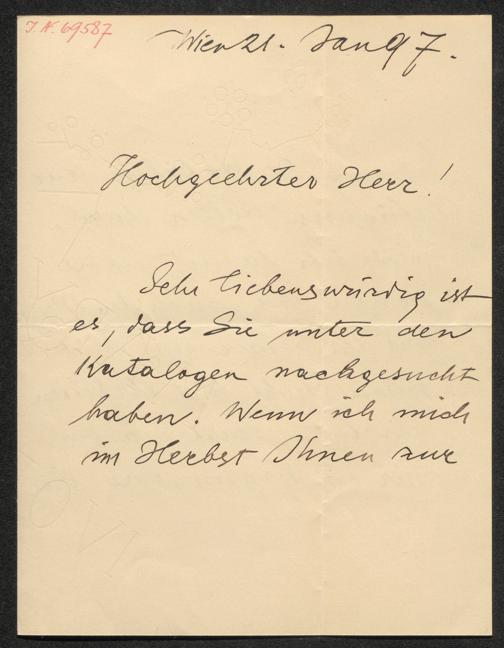 I. N. 69587
Wien 21. Jan 97.
Hochgeehrter Herr!
Sehr liebenswürdig ist
es, dass Sie unter den
Katalogen nachgesucht
haben. Wenn ich mich
im Herbst Ihnen zur